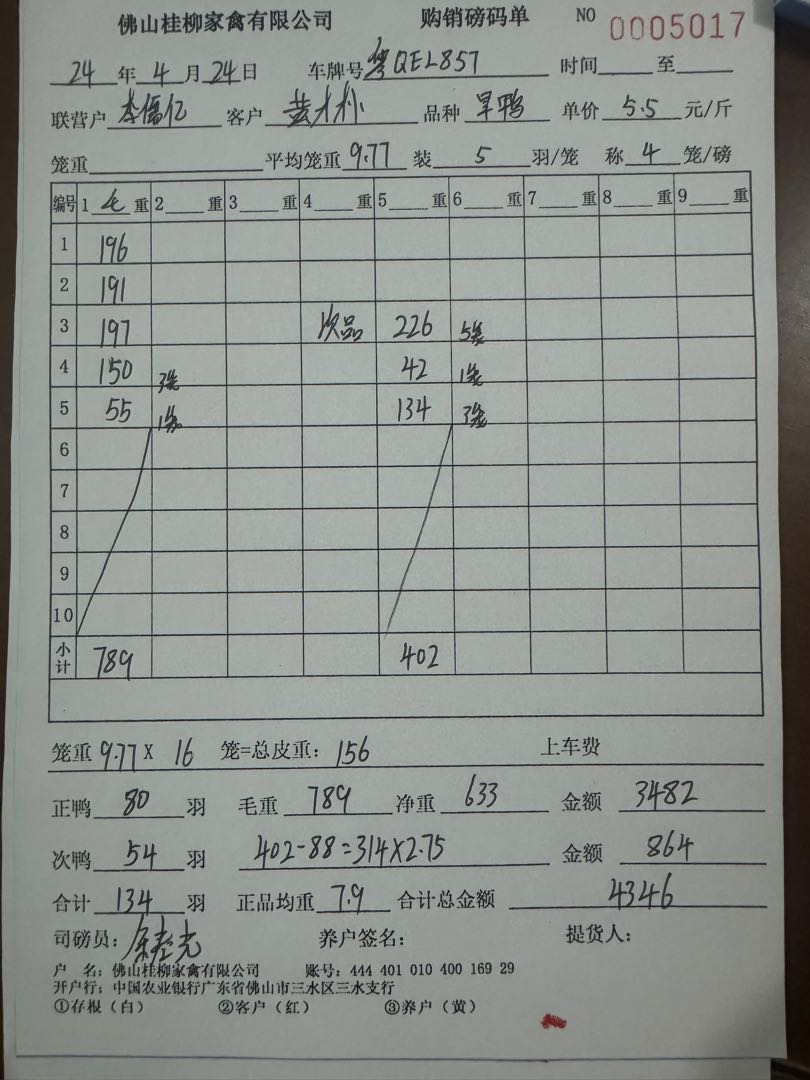 佛山桂柳家禽有限公司 购销磅码单 NO 0005017
24 年 4 月 24 日 车牌号 粤QEL857 时间 至
联营户 李儒亿 客户 黄才朴 品种 旱鸭 单价 5.5 元/斤
笼重 平均笼重 9.77 装 5 羽/笼 称 4 笼/磅
编号 1 毛 重 2 重 3 重 4 重 5 重 6 重 7 重 8 重 9 重
1 196
2 191
3 197 次品 226 5笼
4 150 3笼 42 1笼
5 55 1笼 134 3笼
6
7
8
9
10
小计 789 402
笼重 9.77 X 16 笼=总皮重: 156 上车费
正鸭 80 羽 毛重 789 净重 633 金额 3482
次鸭 54 羽 402-88=314×2.75 金额 864
合计 134 羽 正品均重 7.9 合计总金额 4346
司磅员: 养户签名: 提货人:
户 名: 佛山桂柳家禽有限公司 账号: 444 401 010 400 169 29
开户行: 中国农业银行广东省佛山市三水区三水支行
①存根(白) ②客户(红) ③养户(黄)